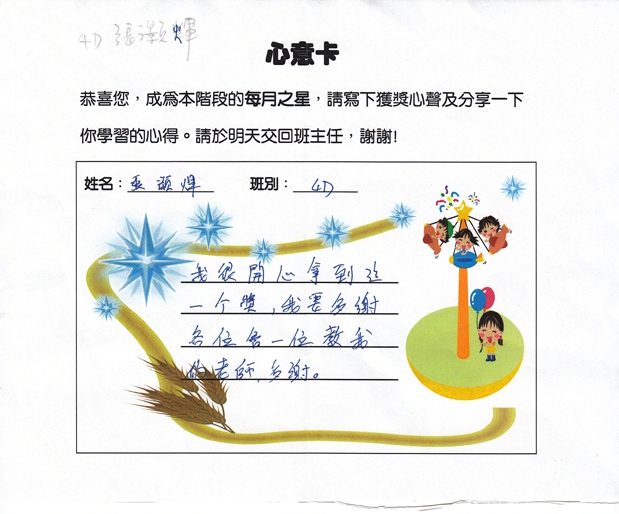 4D 張灝輝
心意卡
恭喜您，成為本階段的每月之星，請寫下獲獎心聲及分享一下
你學習的心得。請於明天交回班主任，謝謝!
姓名： 灝輝 班別： 4D
我很開心拿到这
一个獎，我要多謝
各位每一位教我
的老師，多謝。